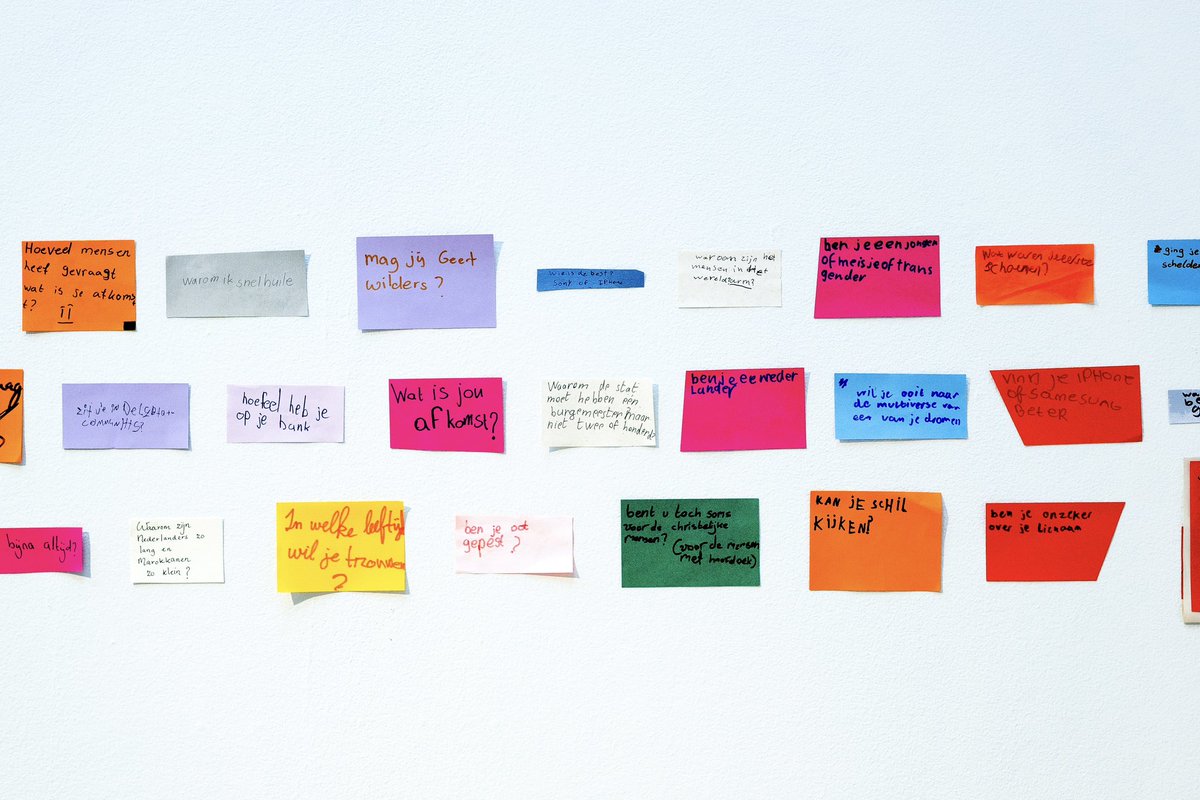 Hoeveel mensen
heef gevraagt
wat is je afkoms
t?
warom ik snel huile
mag jij Geert
wilders ?
wie is de best?
Sony of iphone
waroom zijn het
mensen in Het
wereld arm?
ben je een jongen
of meisje of trans
gender
Wat waren je eerste
schoenen?
ging je
schelde
zit je in De Lgbtq+
community?
hoefeel heb je
op je bank
Wat is jou
afkomst?
Waarom de stat
moet hebben een
burgemeester maar
niet twee of honderd?
ben je eeneder
Lander
wil je ooit naar
de multiverse van
een van je dromen
Vin je IPHONE
of SAMESUNG
BETER
bijna altijd?
Waarom zijn
Nederlanders zo
lang en
Marokkanen
zo klein ?
In welke leeftijd
wil je trouwen
?
ben je oot
gepest ?
bent u toch soms
voor de christelijke
mensen? (voor de mensen
met hoofdoek)
KAN JE SCHIL
KIJKEN?
ben je onzeker
over je lichaam